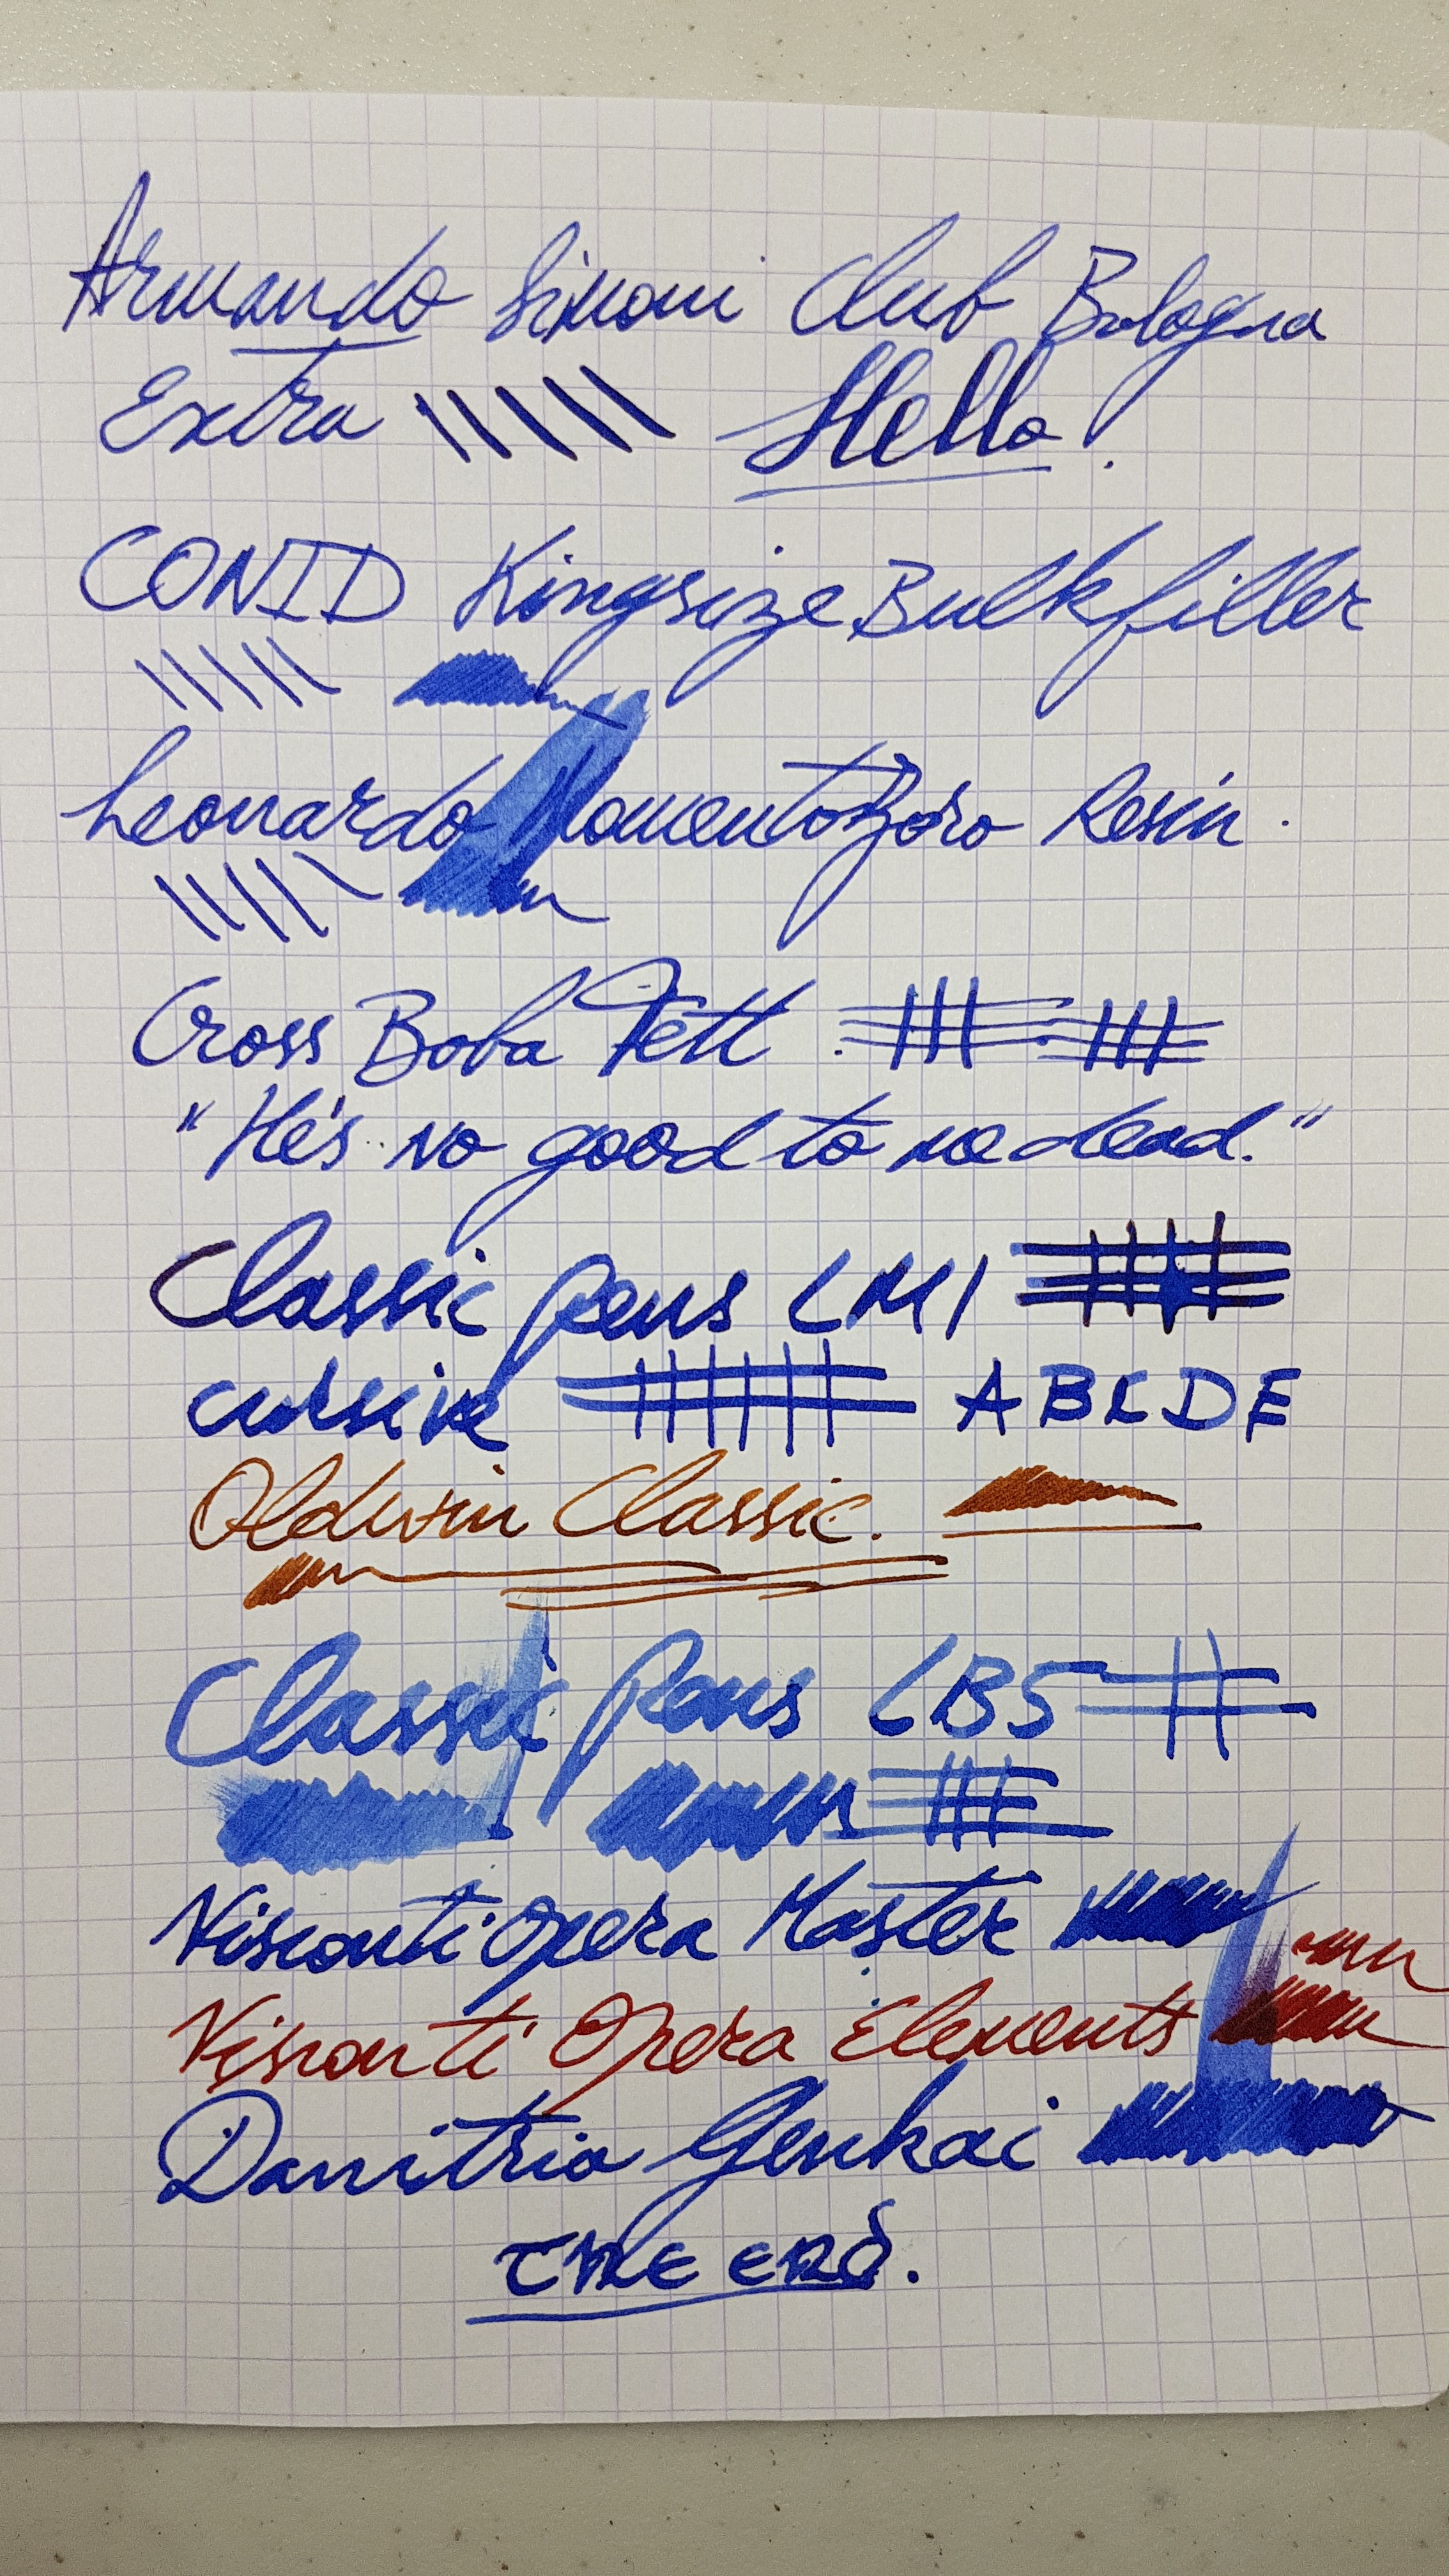 Armando Simoni Club Bologna
Extra Hello!
CONID Kingsize Bulkfiller
Leonardo MomentoZero Resin.
Cross Boba Fett
"He's no good to me dead."
Classic pens LM1
cursive ABCDE
Oldwin Classic.
Classic Pens LB5
Visconti Opera Master
Visconti Opera Elements
Danitrio Genkai
The end.